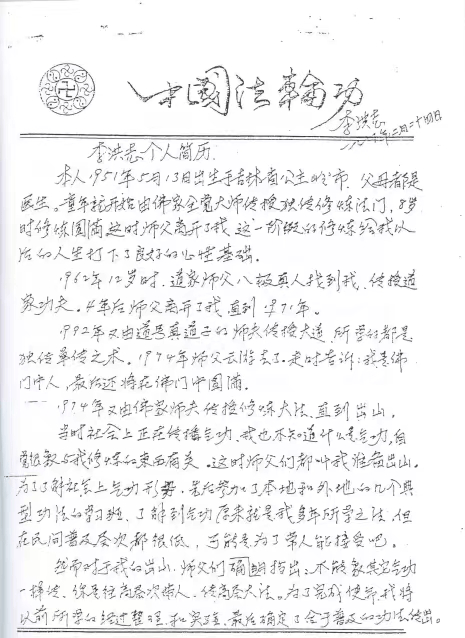 中國法輪功
李洪志
李洪志个人简历.
本人1951年5月13日出生于吉林省公主岭市.父母都是
医生。童年就开始由佛家全觉大师传授独传修炼法门,8岁
时修炼圆满这时师父离开了我.这一阶段的修炼给我以
后的人生打下了良好的心性基础.
1962年12岁时.道家师父八极真人找到我.传授道
家功夫.4年后师父离开了我.直到1971年。
年又由道号真道子的师父传授大道.所学的都是
独传单传之术.1974年师父云游去了.走时告诉:我是佛
门中人,最后还将在佛门中圆满.
1974年又由佛家师父传授修炼大法.直到出山.
当时社会上正在传播气功.我也不知道什么是气功,自
与我修炼的东西有关.这时师父们都叫我准备出山.
为了了解社会上气功形势.参加了本地和外地的几个典
型功法的学习班.了解到气功原来就是我多年所学之法.但
在民间普及层次都很低,可能是为了常人能接受吧.
然而对于我的出山.师父们明确指出:不能教其它气功
一样传.你是往高层次带人.传高层大法.为了完成使命.我将
以前所学的经过整理.和实践.最后确定了合于普及的功法传出。